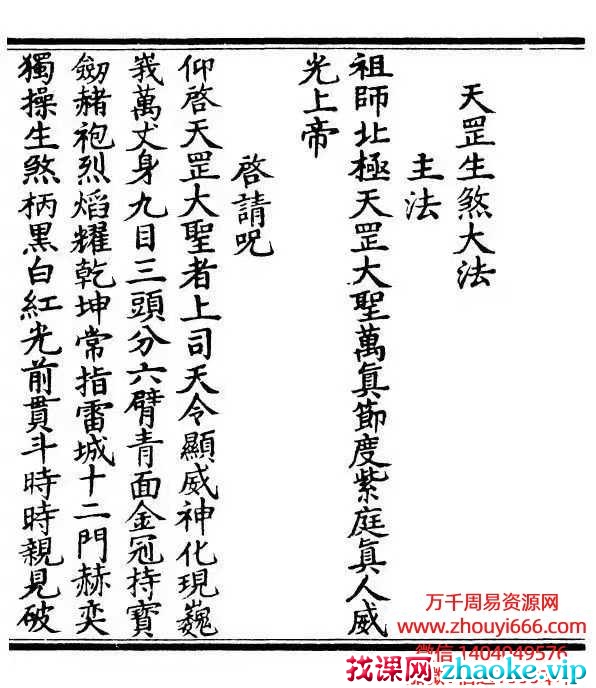 天罡生煞大法
主法
祖師北極天罡大聖萬眞節度紫庭眞人威
光上帝
啓請呪
仰啓天罡大聖者上司天令顯威神化現巍
峩萬丈身九目三頭分六臂青面金冠持寶
劔赭袍烈熖耀乾坤常指雷城十二門赫奕
獨操生煞柄黑白紅光前貫斗時時親見破
万千周易资源网
www.zhouyi666.com
微信 1404049576
找课网zhaoke.vip